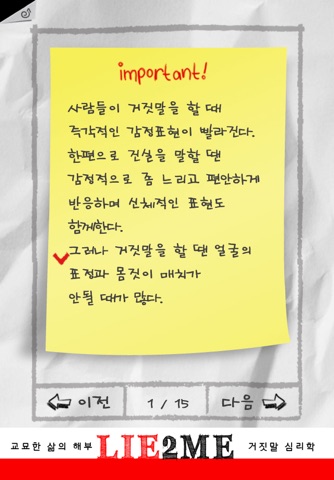 important!
사람들이 거짓말을 할 때
즉각적인 감정표현이 빨라진다.
한편으로 진실을 말할 땐
감정적으로 좀 느리고 편안하게
반응하며 신체적인 표현도
함께한다.
그러나 거짓말을 할 땐 얼굴의
표정과 몸짓이 매치가
안될 때가 많다.
이전
1 / 15
다음
교묘한 삶의 해부 LIE2ME 거짓말 심리학